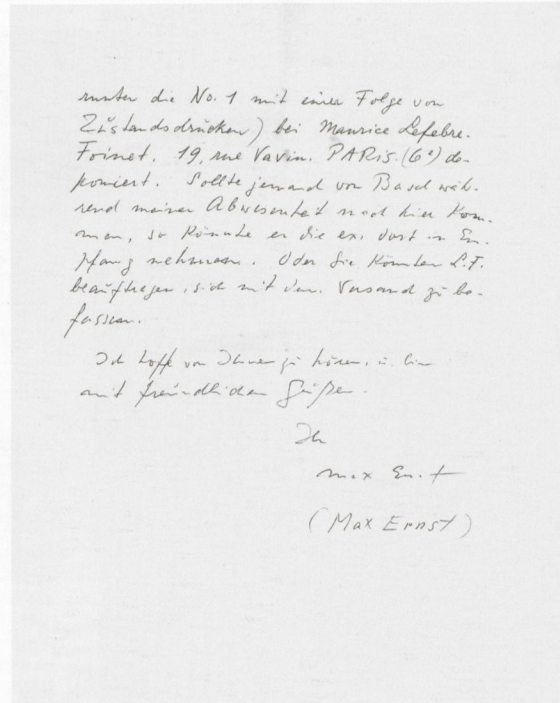 runter die No. 1 mit einer Folge von
Zűstandsdrucken) bei Maurice Lefebre-
Foinet. 19, rue Vavin. PARIS (6e) de-
poniert. Sollte jemand von Basel wäh-
rend meiner Abwesenheit nach hier kom-
men, so könnte er die ex. dort in Em-
pfang nehmen. Oder Sie könnten L.F.
beauftragen, sich mit dem Versand zu be-
fassen.
Ich hoffe von Ihnen zu hören, u. bin
mit freundlichen Grüßen.
Ihr
max Ernst
(Max Ernst)